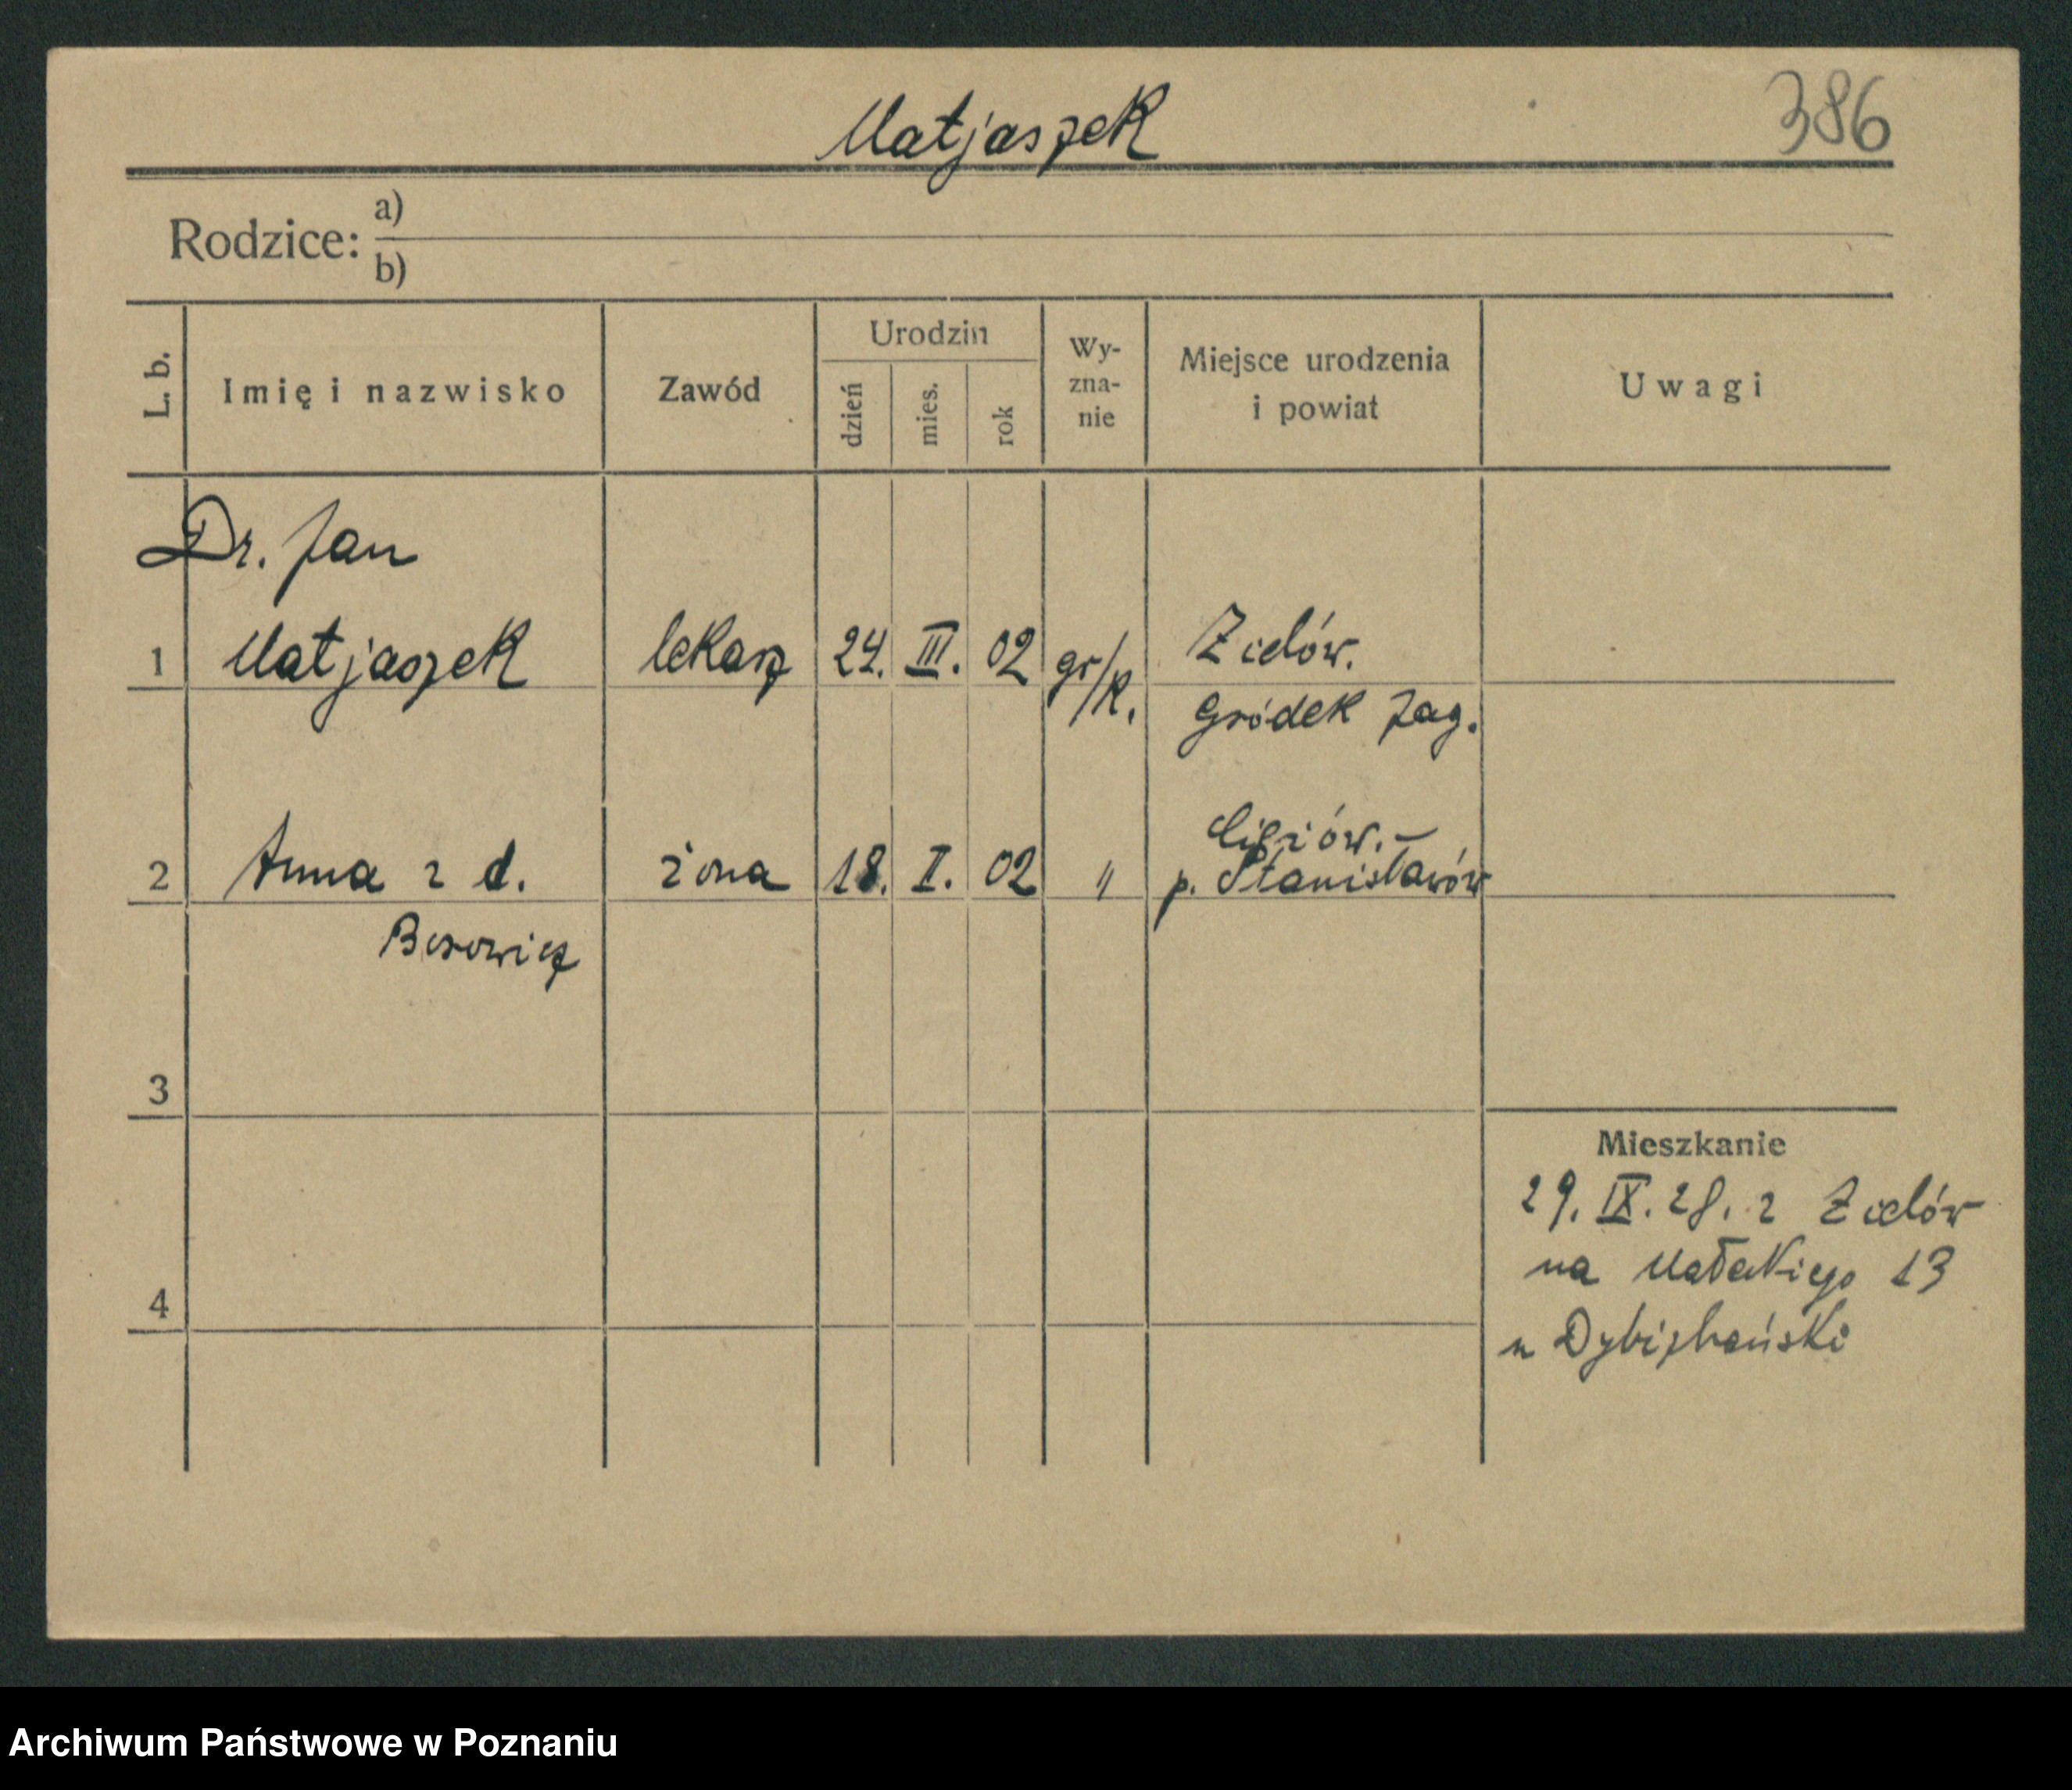 Matjaszek
386
Rodzice: a)
b)
L. b.
Imię i nazwisko
Zawód
Urodzin
dzień
mies.
rok
Wy-
zna-
nie
Miejsce urodzenia
i powiat
Uwagi
Dr. Jan
1 Matjaszek lekarz 24. III. 02 gr/k. Zielów.
Gródek Jag.
2 Anna z d. żona 18. I. 02 "
p. Stanisławów
Borowicz
3
Mieszkanie
29. IX. 28. z Zielów
na Małeckiego 13
4
u Dybizbański
Archiwum Państwowe w Poznaniu